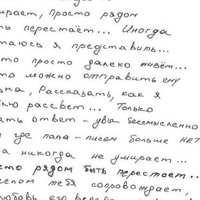 ирает, просто рядом
ть перестаёт... Иногда
таюсь я представить...
то просто далеко живёт...
то можно отправить ему
ма, Рассказать, как я
лю рассвет... Только
ать ответ - увы бессмысленно
где папа - писем больше нет
а никогда не умирает...
сто рядом быть перестает...
елом тебя сопровождает,